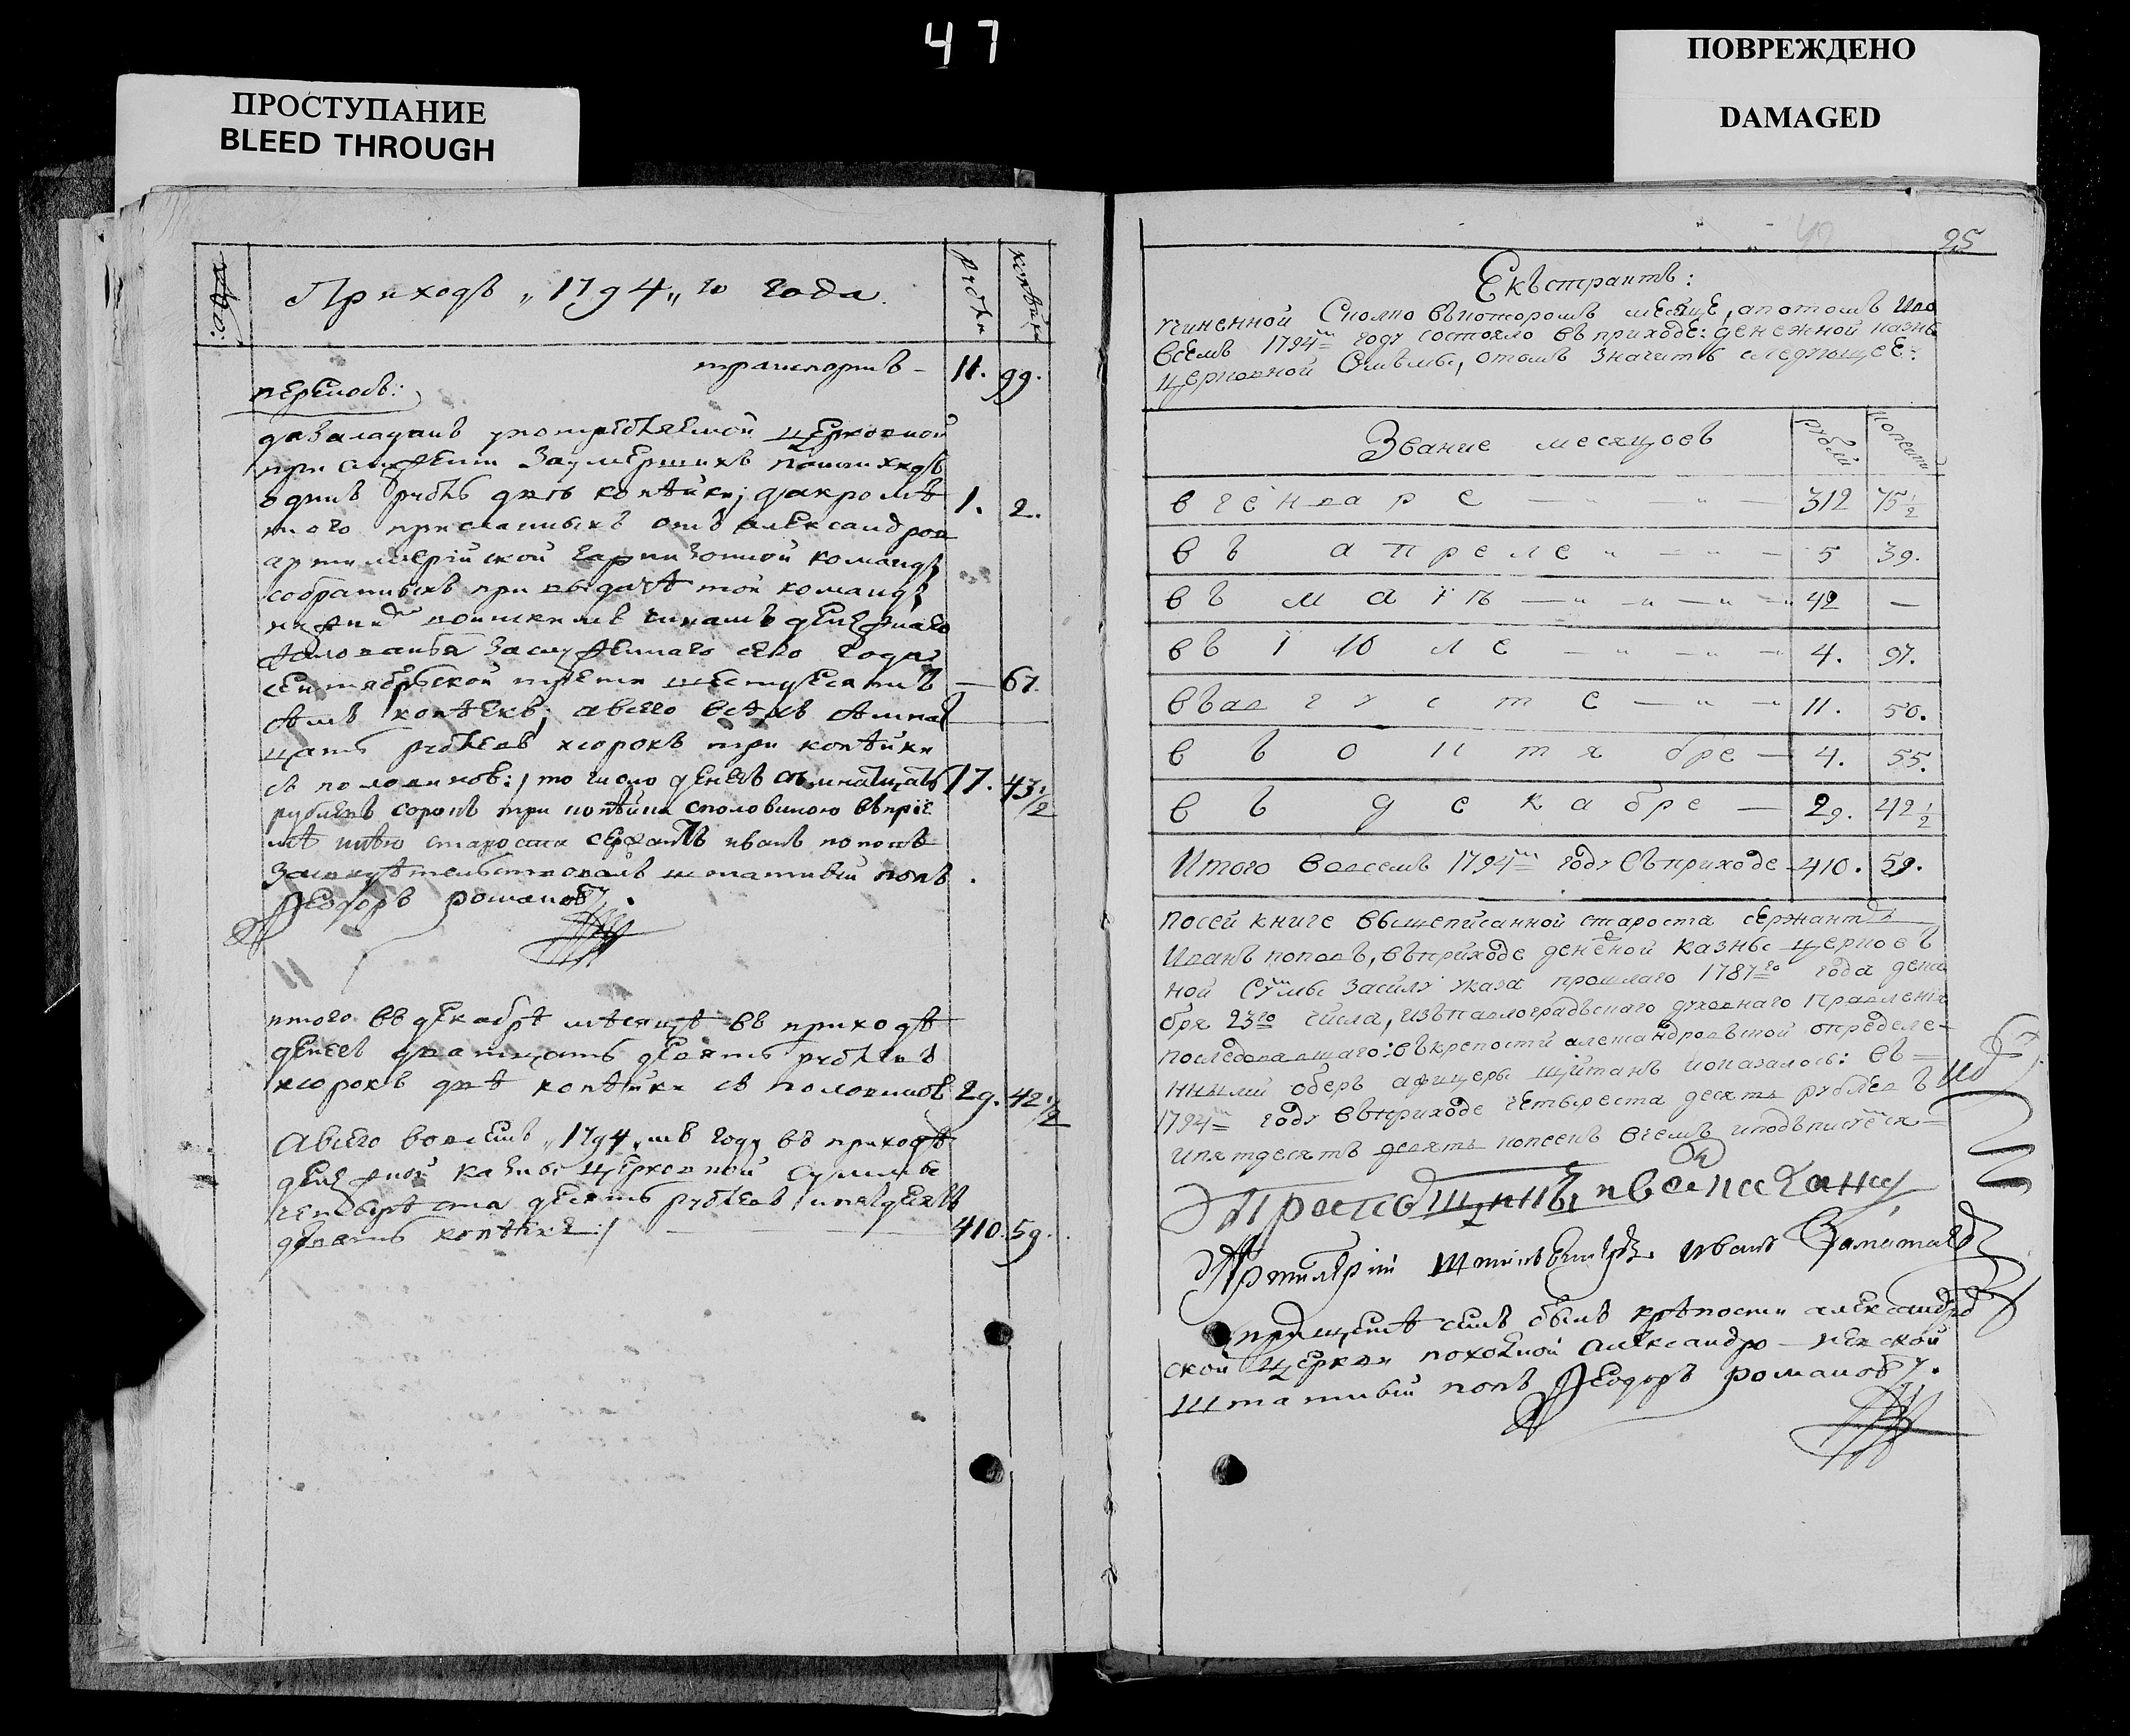 47
ПРОСТУПАНИЕ
BLEED THROUGH
ПОВРЕЖДЕНО
DAMAGED
Приходъ „1794„ го года
рубли
копѣйки
транспортъ - 11. 99.
переносъ:
заумершихъ
одинъ рубль двѣ копѣйки; дакромѣ 1. 2.
того присланныхъ отъ александров
артиллерійской гарнизонной команды
собранныхъ при выдачѣ той команды
воинскимъ чинамъ денежнаго
жалованья заслуженнаго сего года
сентябрьской трети шестьдесятъ — 67.
семь копѣекъ; авсего всѣхъ семнат
цать рублевъ исорокъ три копѣйки
съ половиной: / то число денегъ семнатцать 17. 43 1/2
рублевъ сорокъ три копѣйки споловиною въпріе
мѣ имѣю староста сержантъ иванъ поповъ
Засвидѣтельствовалъ штатный попъ
Феодоръ романовъ.
итого въ декабрѣ мѣсяцѣ въ приходѣ
денегъ дватцать девять рублевъ
исорокъ двѣ копѣйки съ половиной 29. 42 1/2
Авсего вовсемъ „1794„ мъ году въ приходѣ
денежной казны церковной суммы
четыреста десять рублевъ ипятдесятъ
девять копѣекъ :/ — — 410. 59.
25
Екъстрактъ:
чиненной Сколко въкоторомъ месяце, апотомъ иво
всемъ 1794мъ году состояло въприходе: денежной казны
церковной Суммы, отомъ значитъ следующее:
Звание месяцовъ
рубли
копейки
в генваре — „ — „ — 312 75 1/2
въ апреле „ — „ — 5 39.
въ маiѣ — „ — „ — „ — „ 42 —
въ iюле — „ — „ — 4. 97.
въавгусте — „ — „ 11. 50.
въ октябре — 4. 55.
въ декабре — 29. 42 1/2
Итого вовсемъ 1794мъ году въприходе 410. 59.
посей книге вышеписанной староста сержантъ
Иванъ поповъ, въприходе денежной казны церков
ной Суммы засилу указа прошлаго 1787го года дека
бря 23го числа, изъпавлоградъскаго духовнаго правления
последовавшаго: въкрепости александровъской определе-
нными оберъ афицеры щитанъ ипоказалось: въ —
1794мъ году въприходе четыреста десять рублевъ
ипятдесятъ девять копеекъ вчемъ иподъписуемся —
Артилерiи Иванъ
семъ былъ крѣпости александров
ской церкви походной Александро-невской
штатный попъ Феодоръ романовъ.